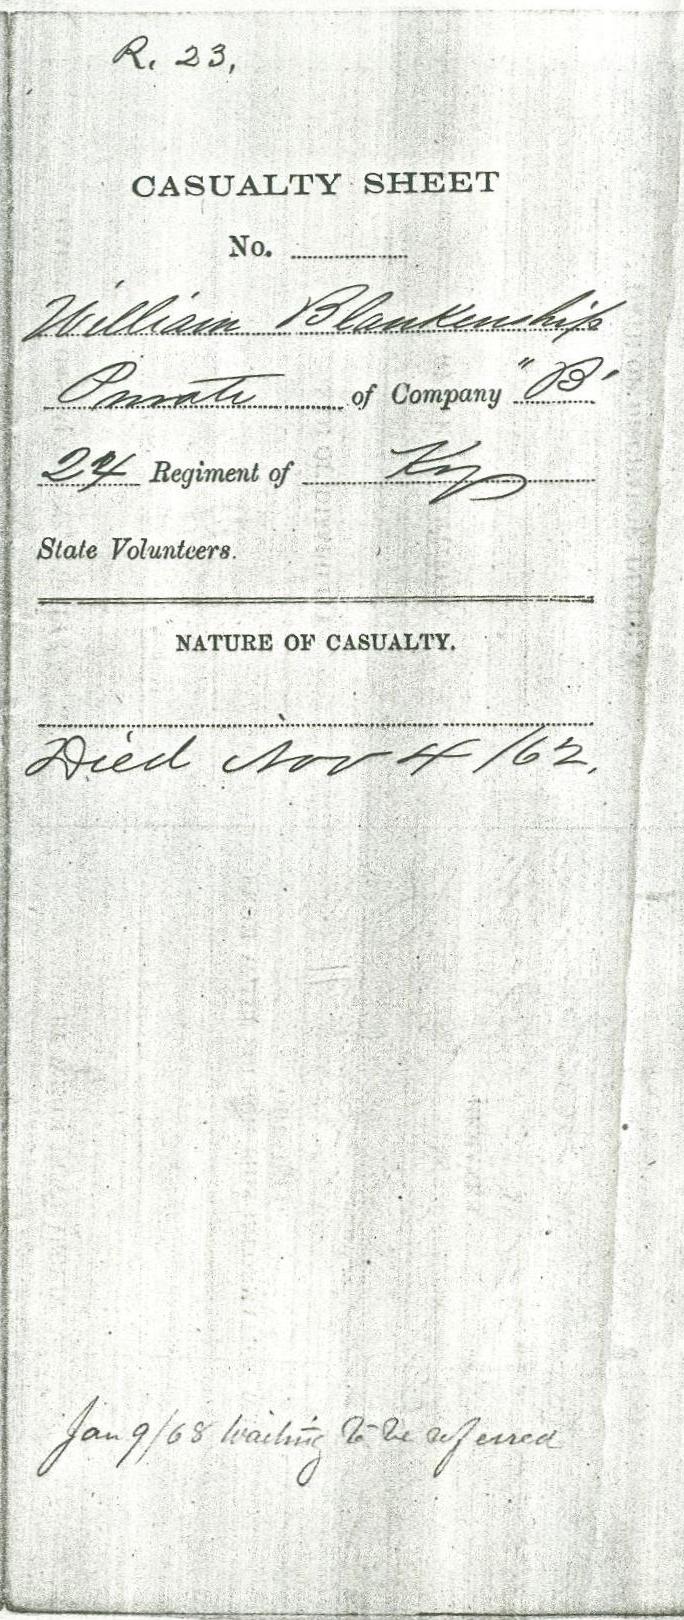 R. 23,
CASUALTY SHEET
No.
William Blankenship
Private of Company "B"
24 Regiment of Ky
State Volunteers.
NATURE OF CASUALTY.
Died Nov 4/62.
Jan 9/68 waiting to be referred